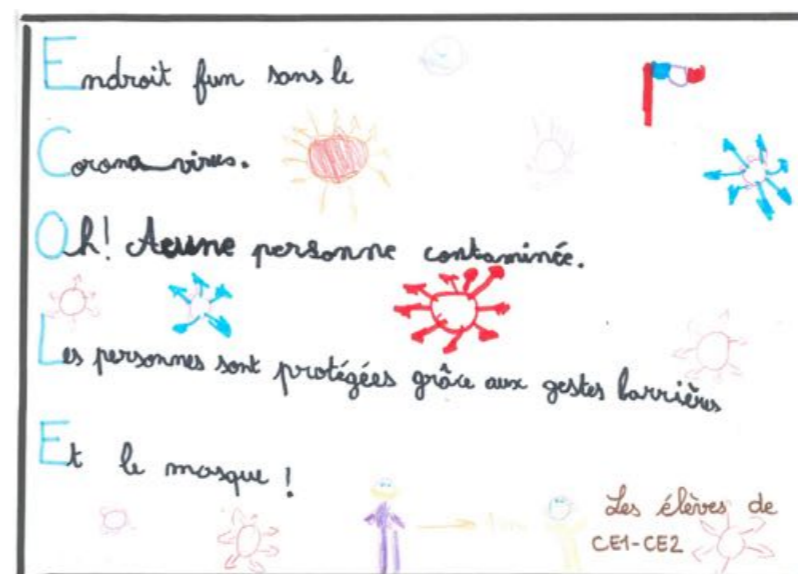 Endroit fun sans le
Corona-virus.
Oh! Aucune personne contaminée.
Les personnes sont protégées grâce aux gestes barrières
Et le masque !
Les élèves de
CE1-CE2